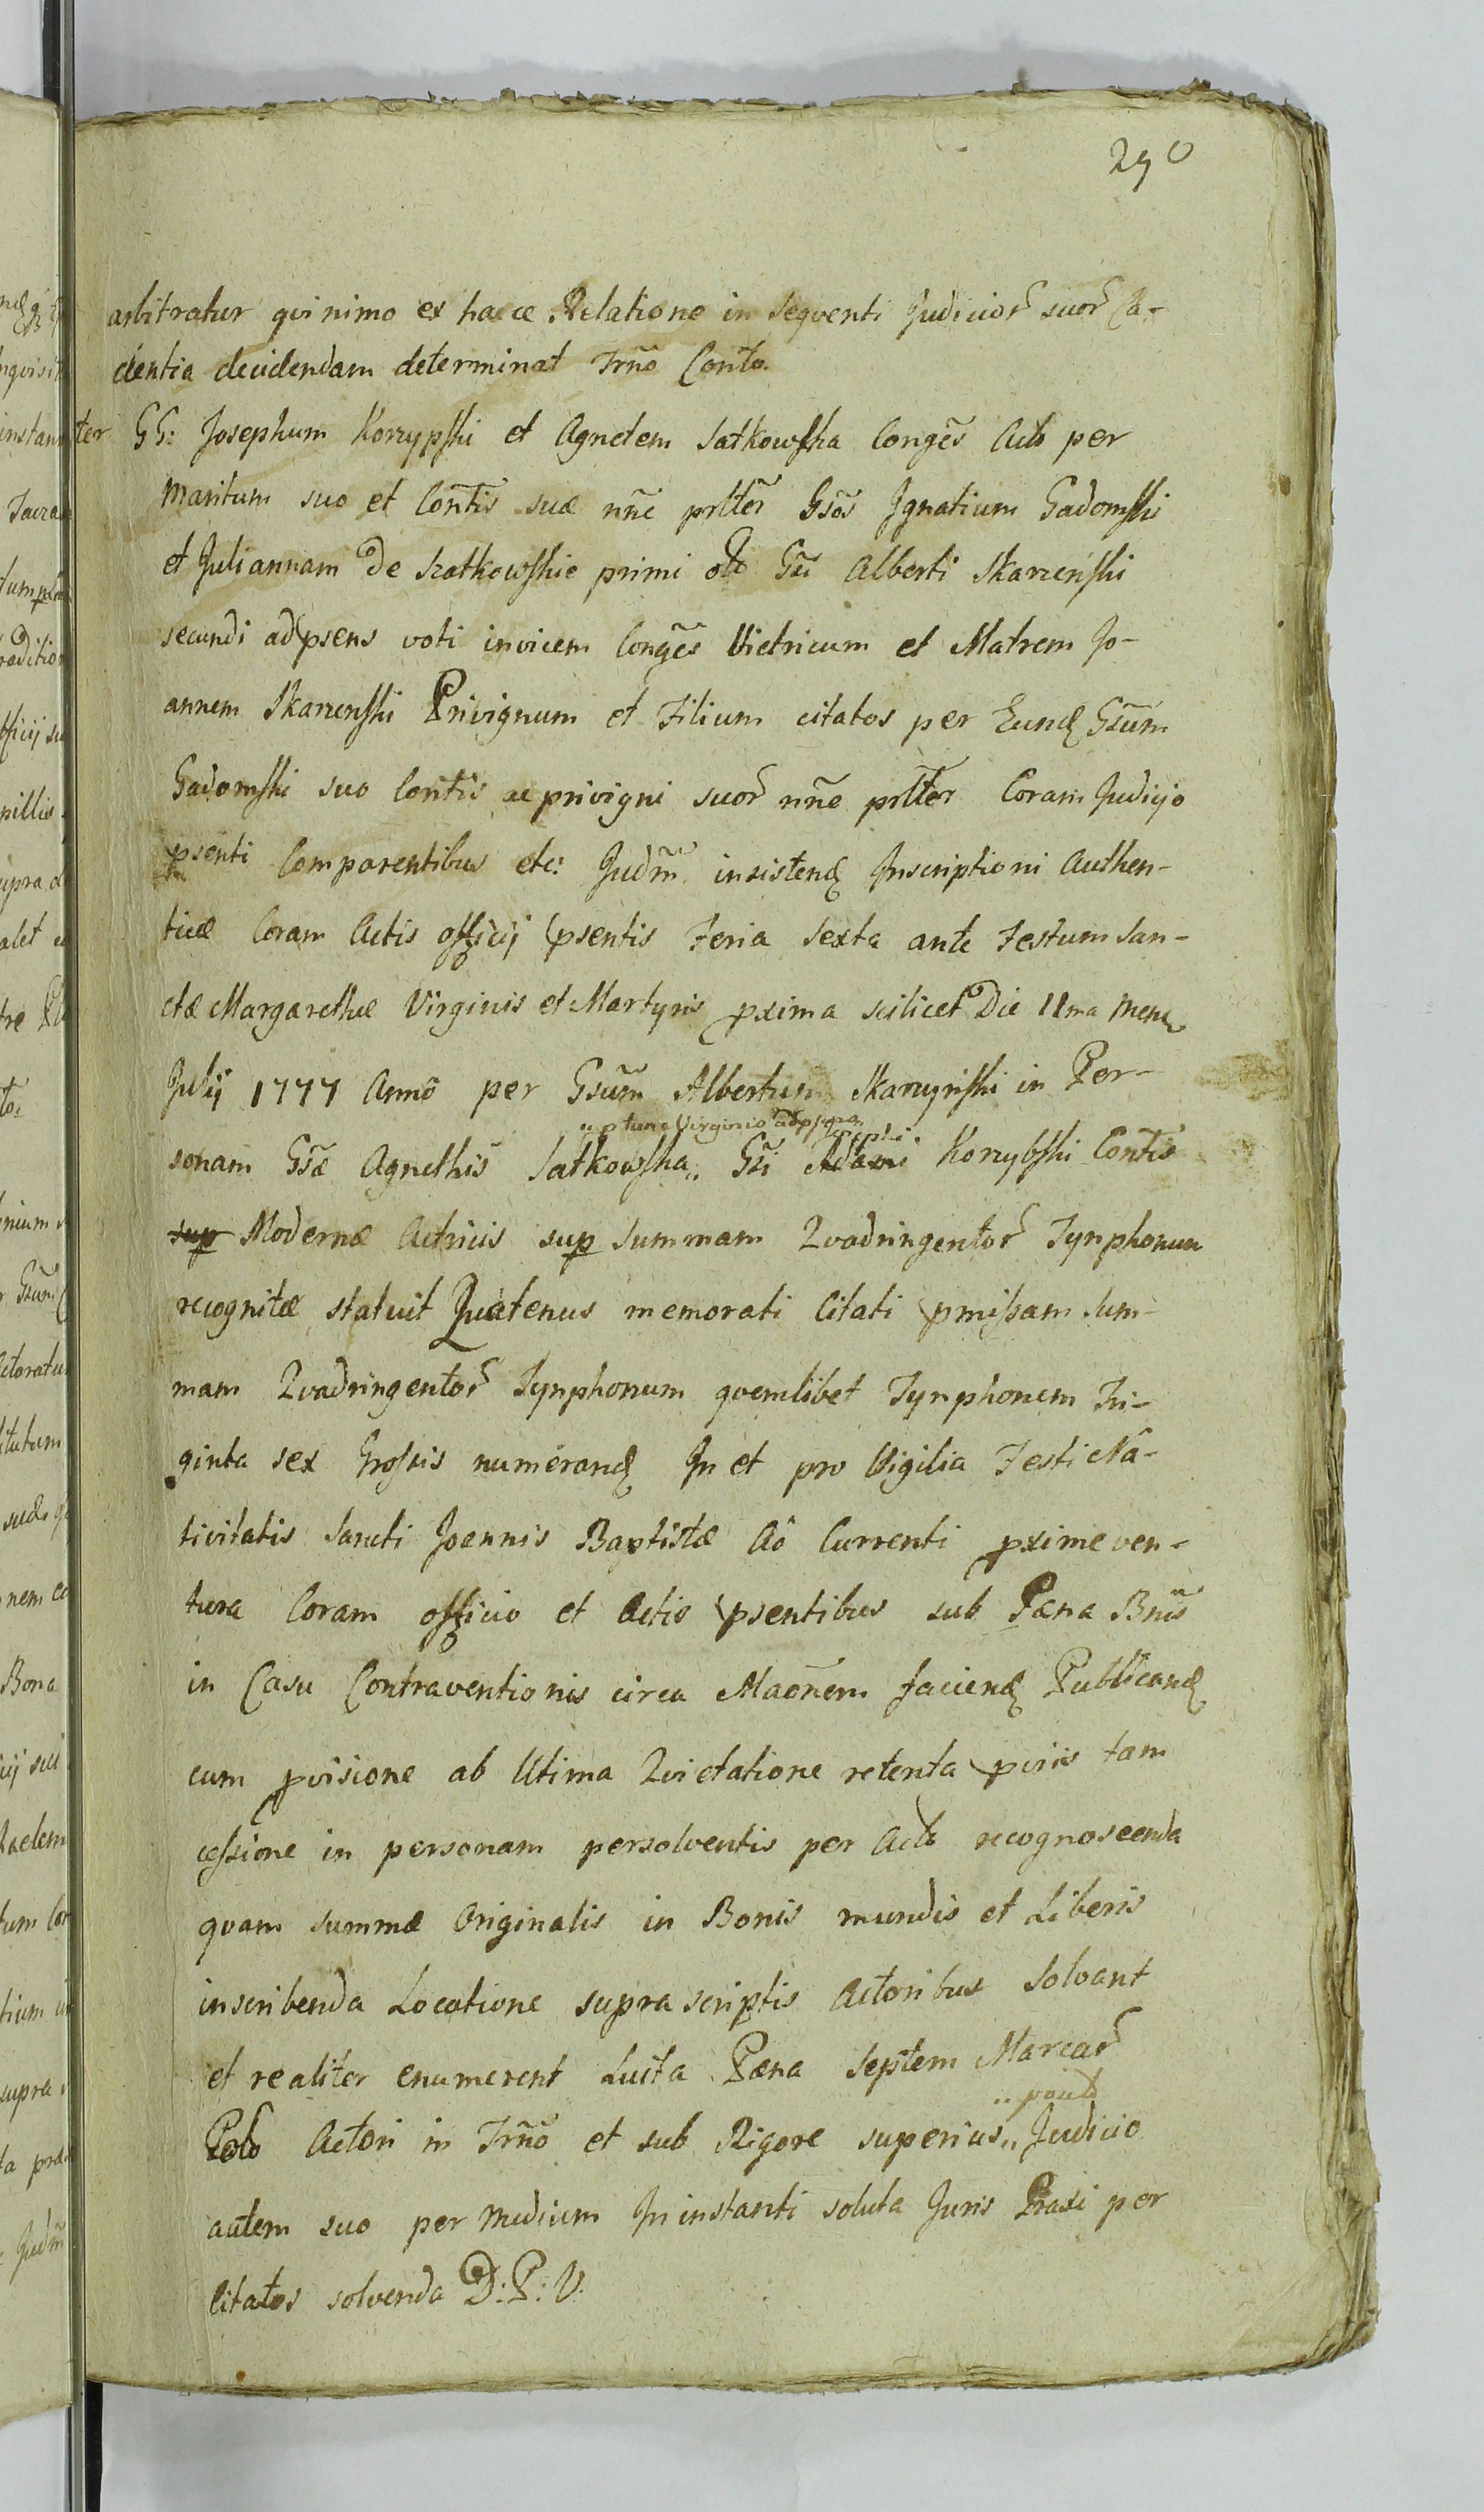 290
arbitratur qvinimo ex hacce Relatione in seqventi Judicior suor Ca-
dentia decidendam determinat Trño Conto.
ter GG: Josephum Korzypski et Agnetem Satkowska Congẽs Acto per
Maritum suo et Cont̃is suæ nñe prltẽr Gsõs Ignatium Gadomski
et Juliannam De Szatkowskie primi olo Gsi Alberti Skarzenski
secundi ad psens voti invicem Congẽs Vietricum et Matrem Jo-
annem Skarzenski Privignum et Filium citatos per Eund Gsũm
Gadomski suo Contis ac privigni suor nñe prltẽr Coram Judicjo
psenti Comparentibus etc: Judm̃ insistend Inscriptioni Authen-
ticæ Coram Actis officij psentis Feria Sexta ante Festum San-
ctæ Margarethæ Virginis et Martyris pxima scilicet Die 11ma Mens
Julij 1777 Anno per Gsũm Albertum Skarzynski in Per-
„ p tunc Virginis ad psens Josephi
sonam Gsæ Agnethis Satkowska„ Gsi Adami Korzybski Contis
sup Modernæ Actricis sup Summam Qvadringentor Tynphonum
recognitæ statuit Quatenus memorati Citati pmissam Sum-
mam Qvadringentor Tynphonum qvemlibet Tynphonem Tri-
ginta sex Grossis numerand In et pro Vigilia Festi Na-
tivitatis Sancti Joannis Baptistæ Aô Currenti pxime ven-
tura Coram officio et Actis psentibus sub Pæna Bnis
in Casu Contraventionis circa Maõnem faciend Publicand
cum pvisione ab Ultima Qvietatione retenta pviis tam
cessione in personam persolventis per Acto recognoscenda
qvam summæ Originalis in Bonis mundis et Liberis
inscribenda Locatione supra scriptis Actoribus Solvant
et realiter enumerent Luita Pæna Septem Marcar
Polo Actori in Trño et sub Rigore superius„ Judicio
autem suo per Medium In instanti soluta Juris Praxi per
Citatos solvenda D: P: V.